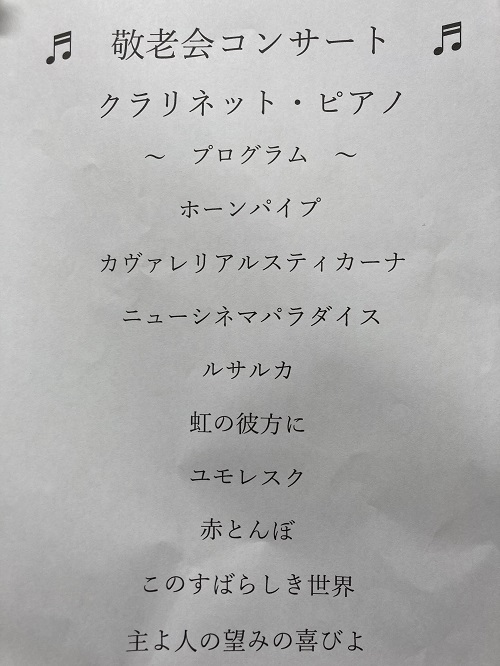 ♬ 敬老会コンサート ♬
クラリネット・ピアノ
～ プログラム ～
ホーンパイプ
カヴァレリアルスティカーナ
ニューシネマパラダイス
ルサルカ
虹の彼方に
ユモレスク
赤とんぼ
このすばらしき世界
主よ人の望みの喜びよ